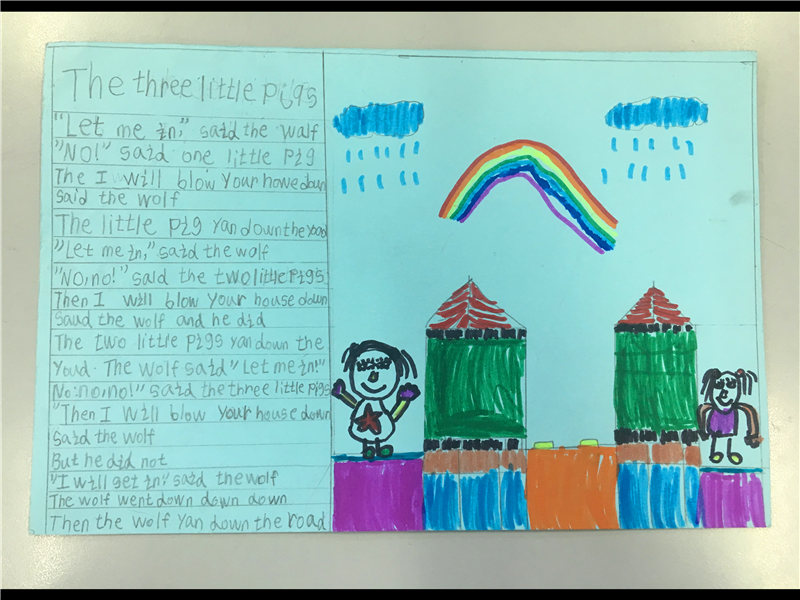 The three little pigs
"Let me in," said the walf
"NO!" said one little pig
The I will blow your howe down
said the wolf
The little pig yan down the yoad
"Let me in," said the wolf
"NO,no!" said the two little pigs
Then I will blow your house down
saud the wolf and he did
The two little pigs yan down the
youd. The wolf said "Let me in!"
No,no,no!" said the three little pigs
"Then I will blow your house down
said the wolf
But he did not
"I will get in," said the wolf
The wolf went down down down
Then the wolf yan down the road